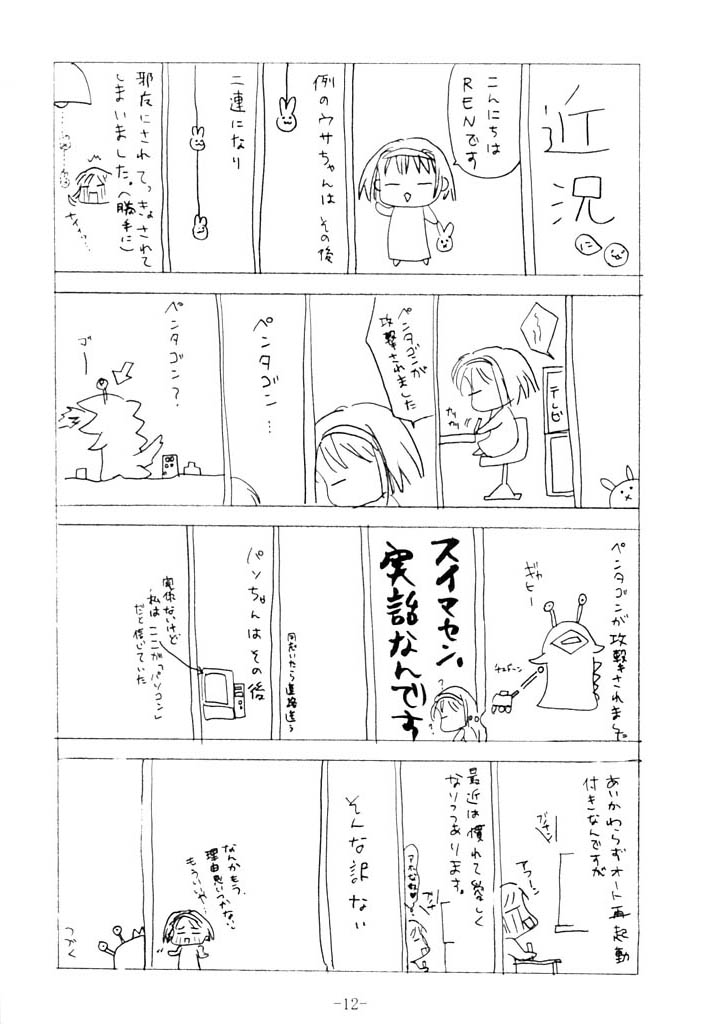 近況
こんにちは
RENです
例のウサちゃんは その後
二連になり
邪友にされててっきょされて
しまいました。(勝手に)
テレビ
カリカリ
ペンタゴンが
攻撃されました
ペンタゴン…
ペンタゴン?
ゴー
ペンタゴンが攻撃されました
ギャヒー
チュドーン
スイマセン、
実話なんです
?
何書いたら進路違う
パソちゃんは その後
実体ないけど
私はここが「パソコン」
だと信じていた
あいかわらずオート再起動
付きなんですが
ブチン
アフーン
最近は慣れて愛しく
なりつつあります。
そんな訳ない
なんかもう、
理由思いつかない
もういいや…
つづく
-12-